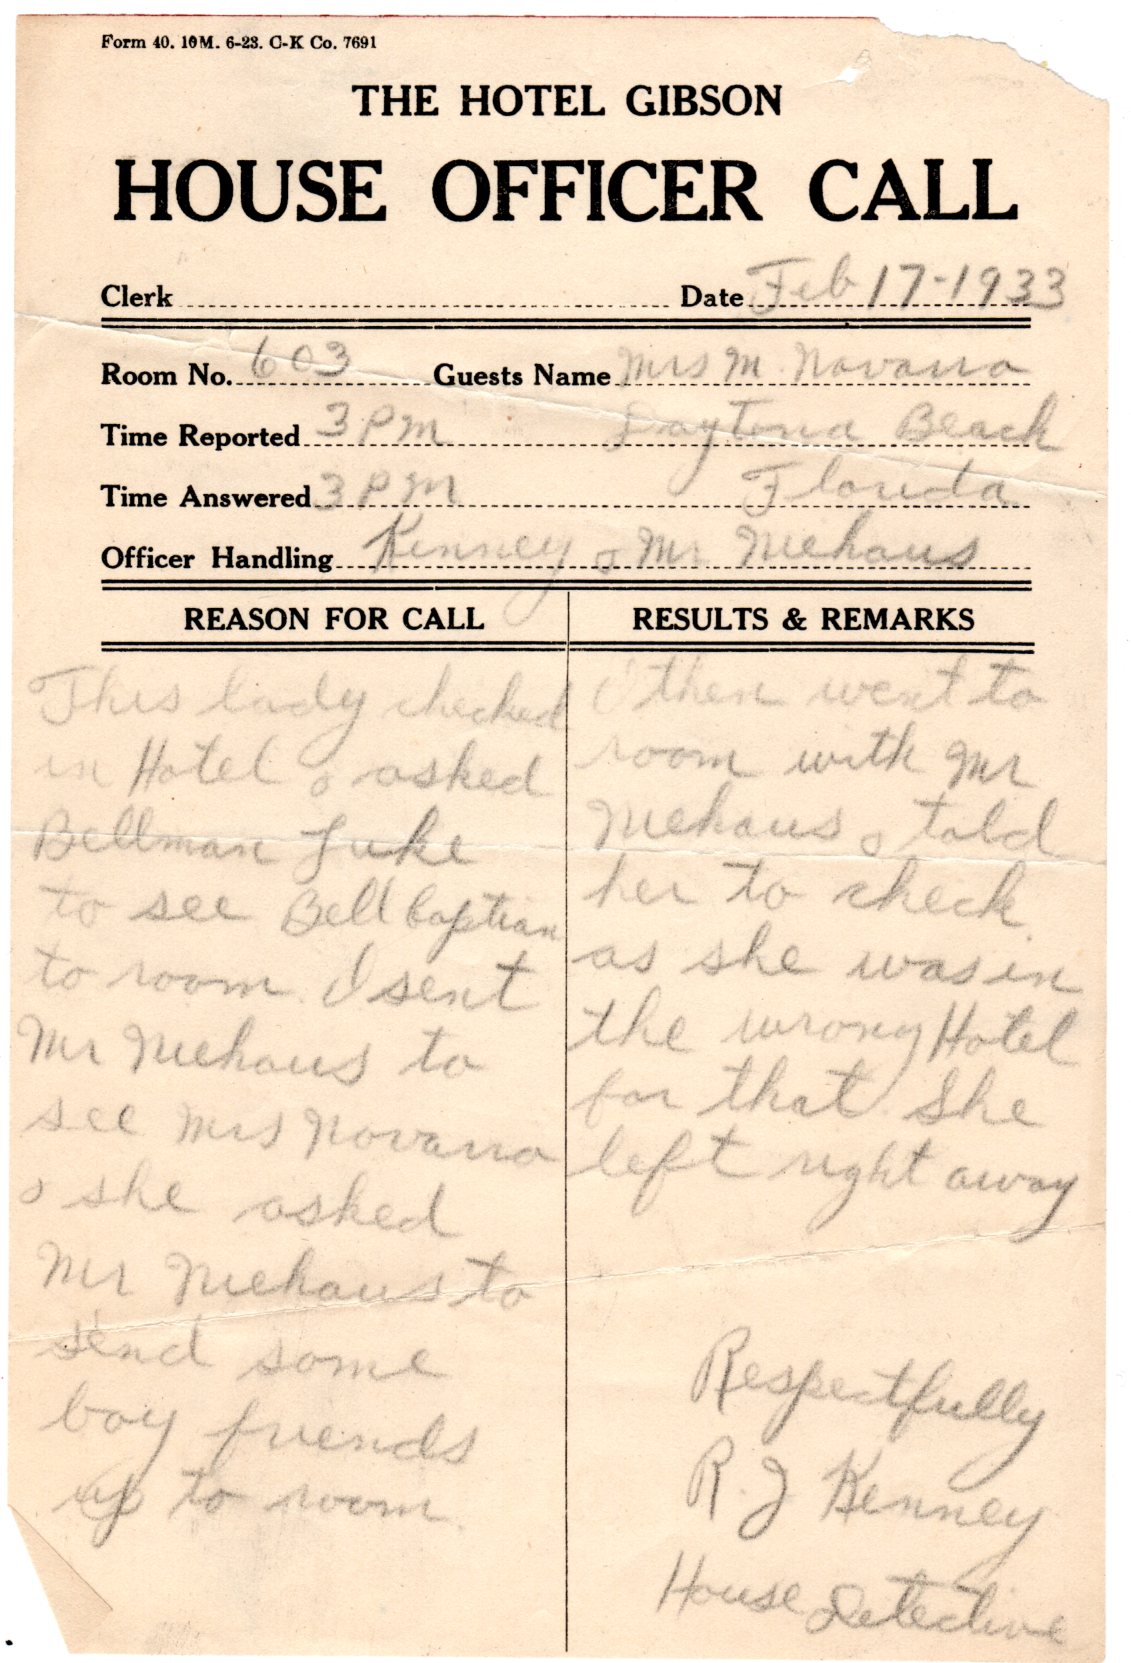 Form 40. 10M. 6-23. C-K Co. 7691
THE HOTEL GIBSON
HOUSE OFFICER CALL
Clerk Date Feb 17-1933
Room No. 603 Guests Name Mrs M. Navarro
Time Reported 3 PM Daytona Beach
Time Answered 3 PM Florida
Officer Handling Kenney & Mr Niehaus
REASON FOR CALL
This lady checked
in Hotel & asked
Bellman Luke
to see Bell Captian
to room. I sent
Mr Niehaus to
see Mrs Novarro
& she asked
Mr Niehaus to
send some
boy friends
up to room.
RESULTS & REMARKS
I then went to
room with Mr
Niehaus & told
her to check
as she was in
the wrong Hotel
for that. She
left right away
Respectfully
R. J Kenney
House Detective